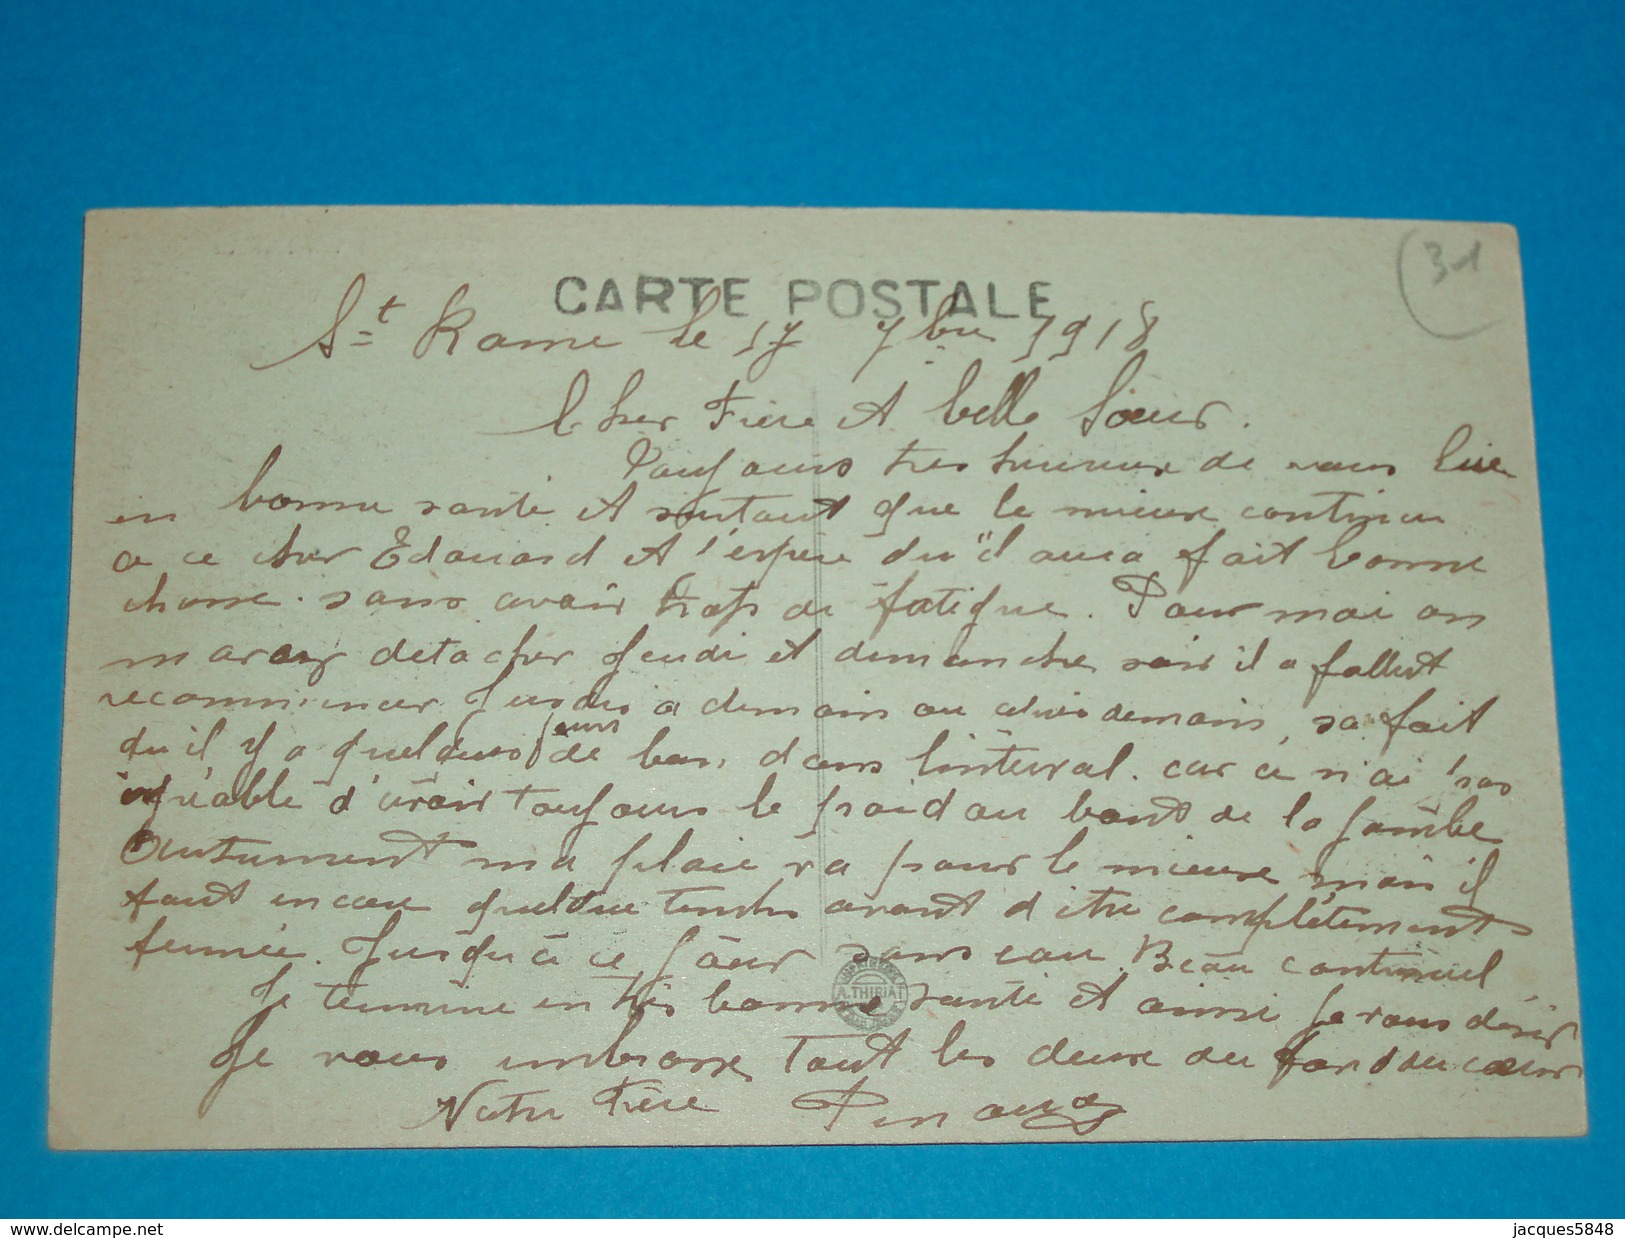 (31
CARTE POSTALE
St Rome le 17 7bre 1918
Cher Frère et belle Sœur.
Toujours tres heureux de vous lire
en bonne santé et surtout que le mieux continu
a ce cher Edouard et l'espère du il aura fait bonne
chasse. sans avoir trops de fatigue. Pour moi on
detacher Jeudi et dimanche soir il a fallut
recommencer Jusqu a demain ou demain, sa fait
qu il y a quelques jours de bon, dans linterval. car ce n'ai pas
agréable d'avoir toujours le froid au bout de la jambe
Autrement ma plaie va pour le mieux mais il
faut encore quelque temps avant d'être complètement
fermée. Jusqu'à ce jour sans eau Beau continuel
Je termine en très bonne santé et ainsi je vous désir
Je vous embrasse Tout les deux du fond du cœur
Notre Frère
A. THIRIAT
jacques5848
www.delcampe.net